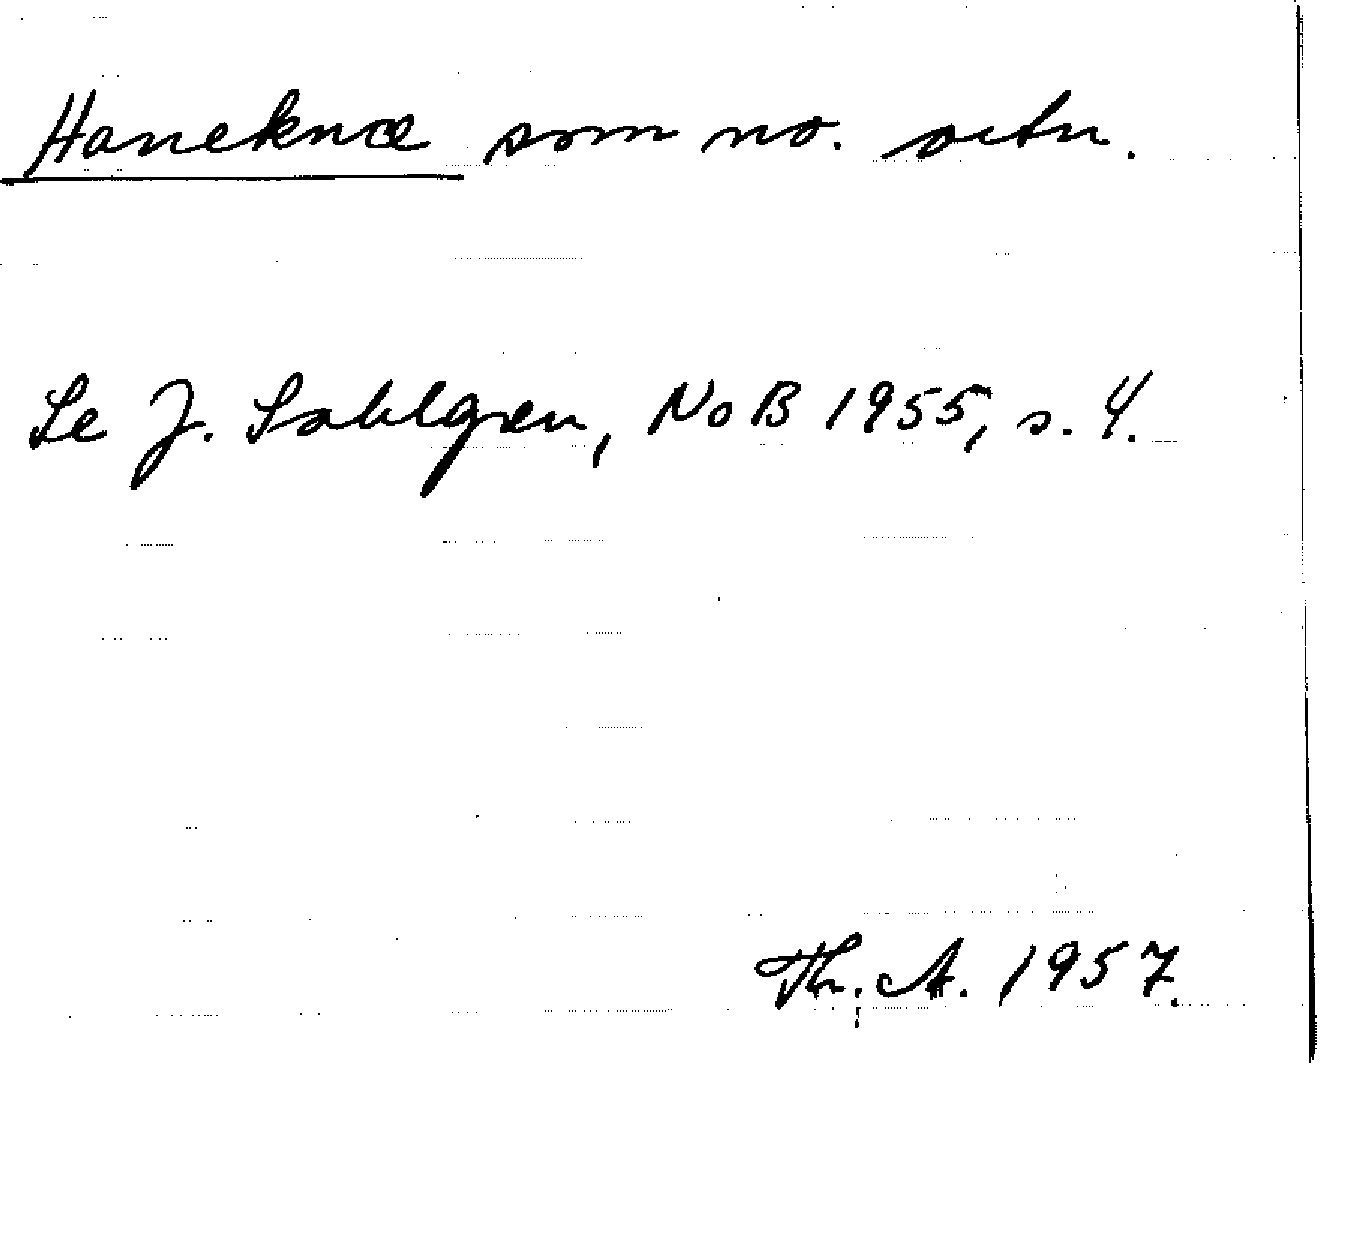 Haneknæ som no. ortn.
Se J. Sahlgren, NoB 1955, s. 4.
Th. A. 1957.